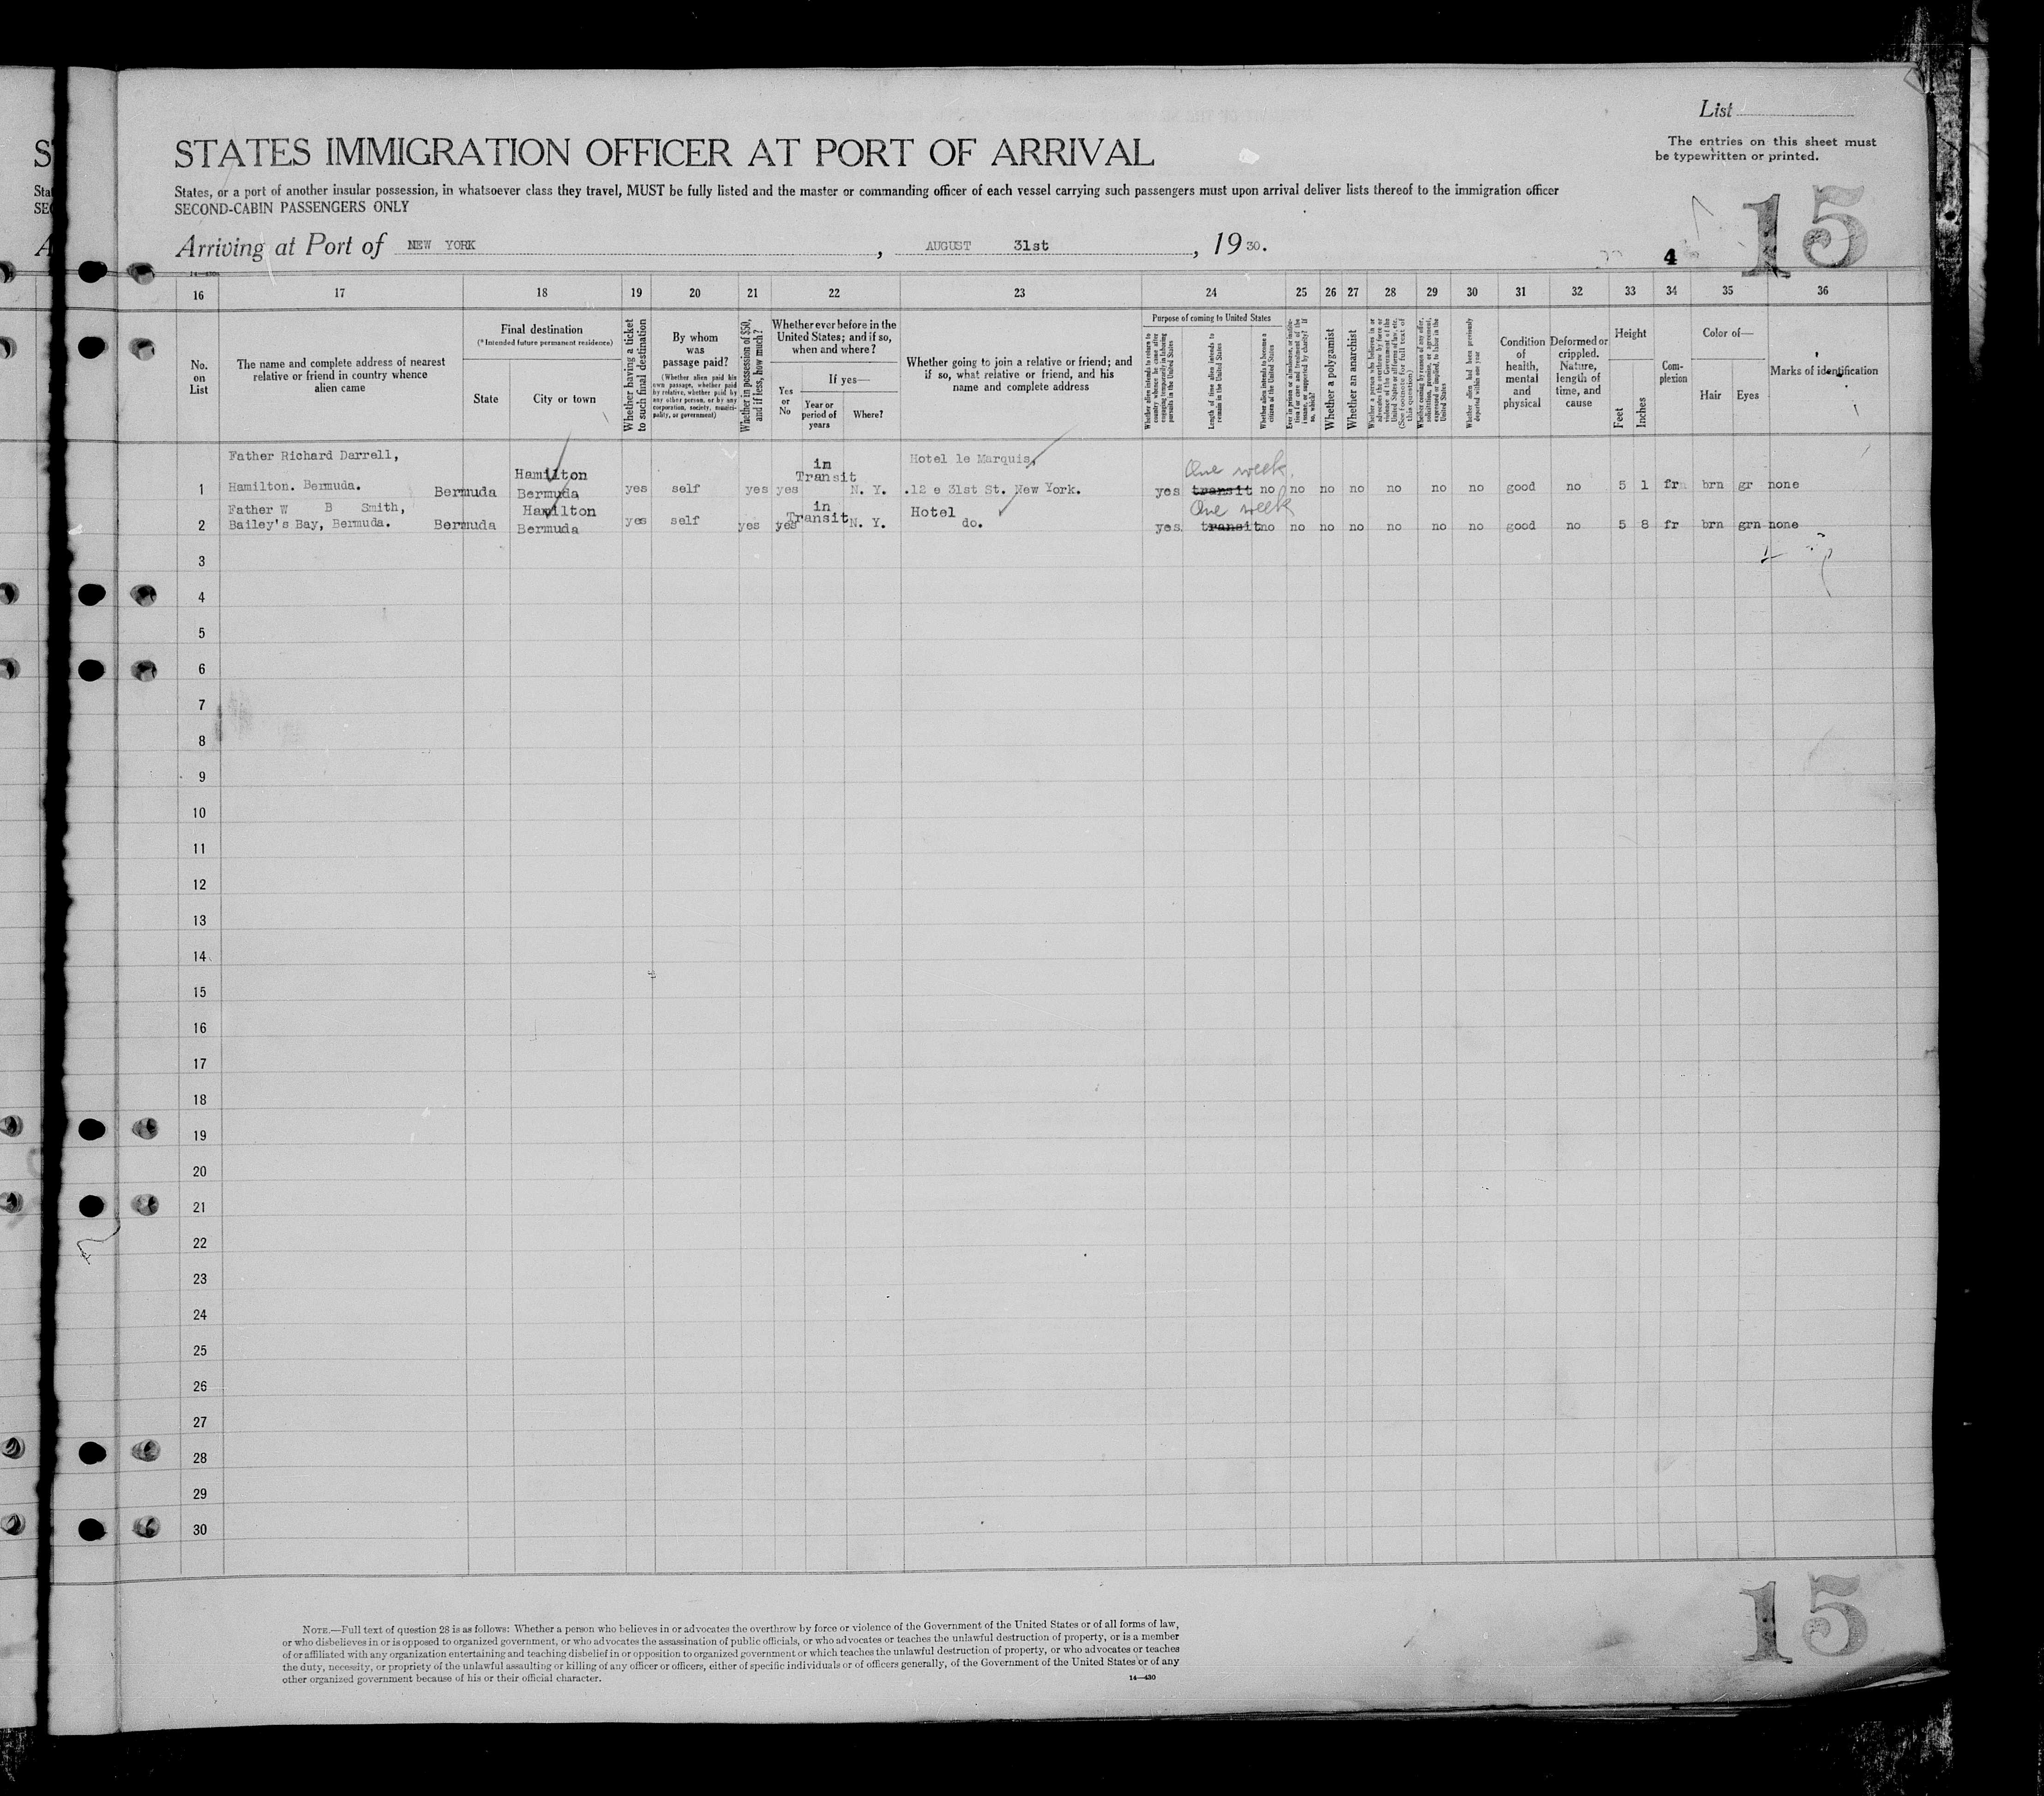 List
The entries on this sheet must
be typewritten or printed.
STATES IMMIGRATION OFFICER AT PORT OF ARRIVAL
States, or a port of another insular possession, in whatsoever class they travel, MUST be fully listed and the master or commanding officer of each vessel carrying such passengers must upon arrival deliver lists thereof to the immigration officer
SECOND-CABIN PASSENGERS ONLY
15
Arriving at Port of NEW YORK, AUGUST 31st, 1930.
4
16 17 18 19 20 21 22 23 24 25 26 27 28 29 30 31 32 33 34 35 36
No. on List
The name and complete address of nearest
relative or friend in country whence
alien came
Final destination
(*Intended future permanent residence)
State City or town
Whether having a ticket
to such final destination
By whom
was
passage paid?
(Whether alien paid his
own passage, whether paid
by relative, whether paid by
any other person, or by any
corporation, society, munici-
pality, or government)
Whether in possession of $50,
and if less, how much?
Whether ever before in the
United States; and if so,
when and where?
Yes or No
If yes—
Year or
period of
years
Where?
Whether going to join a relative or friend; and
if so, what relative or friend, and his
name and complete address
Purpose of coming to United States
Whether alien intends to return to
country whence he came after
engaging temporarily in laboring
pursuits in the United States
Length of time alien intends to
remain in the United States
Whether alien intends to become a
citizen of the United States
Ever in prison or almshouse, or institu-
tion for care and treatment of the
insane, or supported by charity? If
so, which?
Whether a polygamist
Whether an anarchist
Whether a person who believes in or
advocates the overthrow by force or
violence of the Government of the
United States or all forms of law, etc.
(See footnote for full text of
this question)
Whether coming by reason of any offer,
solicitation, promise, or agreement,
expressed or implied, to labor in the
United States
Whether alien had been previously
deported within one year
Condition
of
health,
mental
and
physical
Deformed or
crippled.
Nature,
length of
time, and
cause
Height
Feet Inches
Com-
plexion
Color of—
Hair Eyes
Marks of identification
Father Richard Darrell, Hamilton in Transit Hotel le Marquis, One week.
1 Hamilton. Bermuda. Bermuda Bermuda yes self yes yes N. Y. 12 e 31st St. New York. yes transit no no no no no no no good no 5 1 fr brn gr none
Father W B Smith, Hamilton in Transit Hotel One week
2 Bailey's Bay, Bermuda. Bermuda Bermuda yes self yes yes N. Y. do. yes. transit no no no no no no no good no 5 8 fr brn grn none
3
4
5
6
7
8
9
10
11
12
13
14
15
16
17
18
19
20
21
22
23
24
25
26
27
28
29
30
NOTE.—Full text of question 28 is as follows: Whether a person who believes in or advocates the overthrow by force or violence of the Government of the United States or of all forms of law,
or who disbelieves in or is opposed to organized government, or who advocates the assassination of public officials, or who advocates or teaches the unlawful destruction of property, or is a member
of or affiliated with any organization entertaining and teaching disbelief in or opposition to organized government or which teaches the unlawful destruction of property, or who advocates or teaches
the duty, necessity, or propriety of the unlawful assaulting or killing of any officer or officers, either of specific individuals or of officers generally, of the Government of the United States or of any
other organized government because of his or their official character.
14—430
15